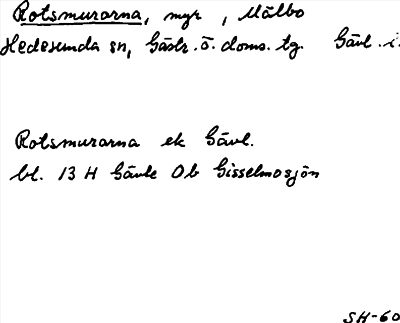 Rotsmurarna, myr, Mälbo
Hedesunda sn, Gästr. ö. doms. tg. Gävl. i.
Rotsmurarna ek Gävl.
bl. 13 H Gävle 0b Gisselmosjön
SH-60